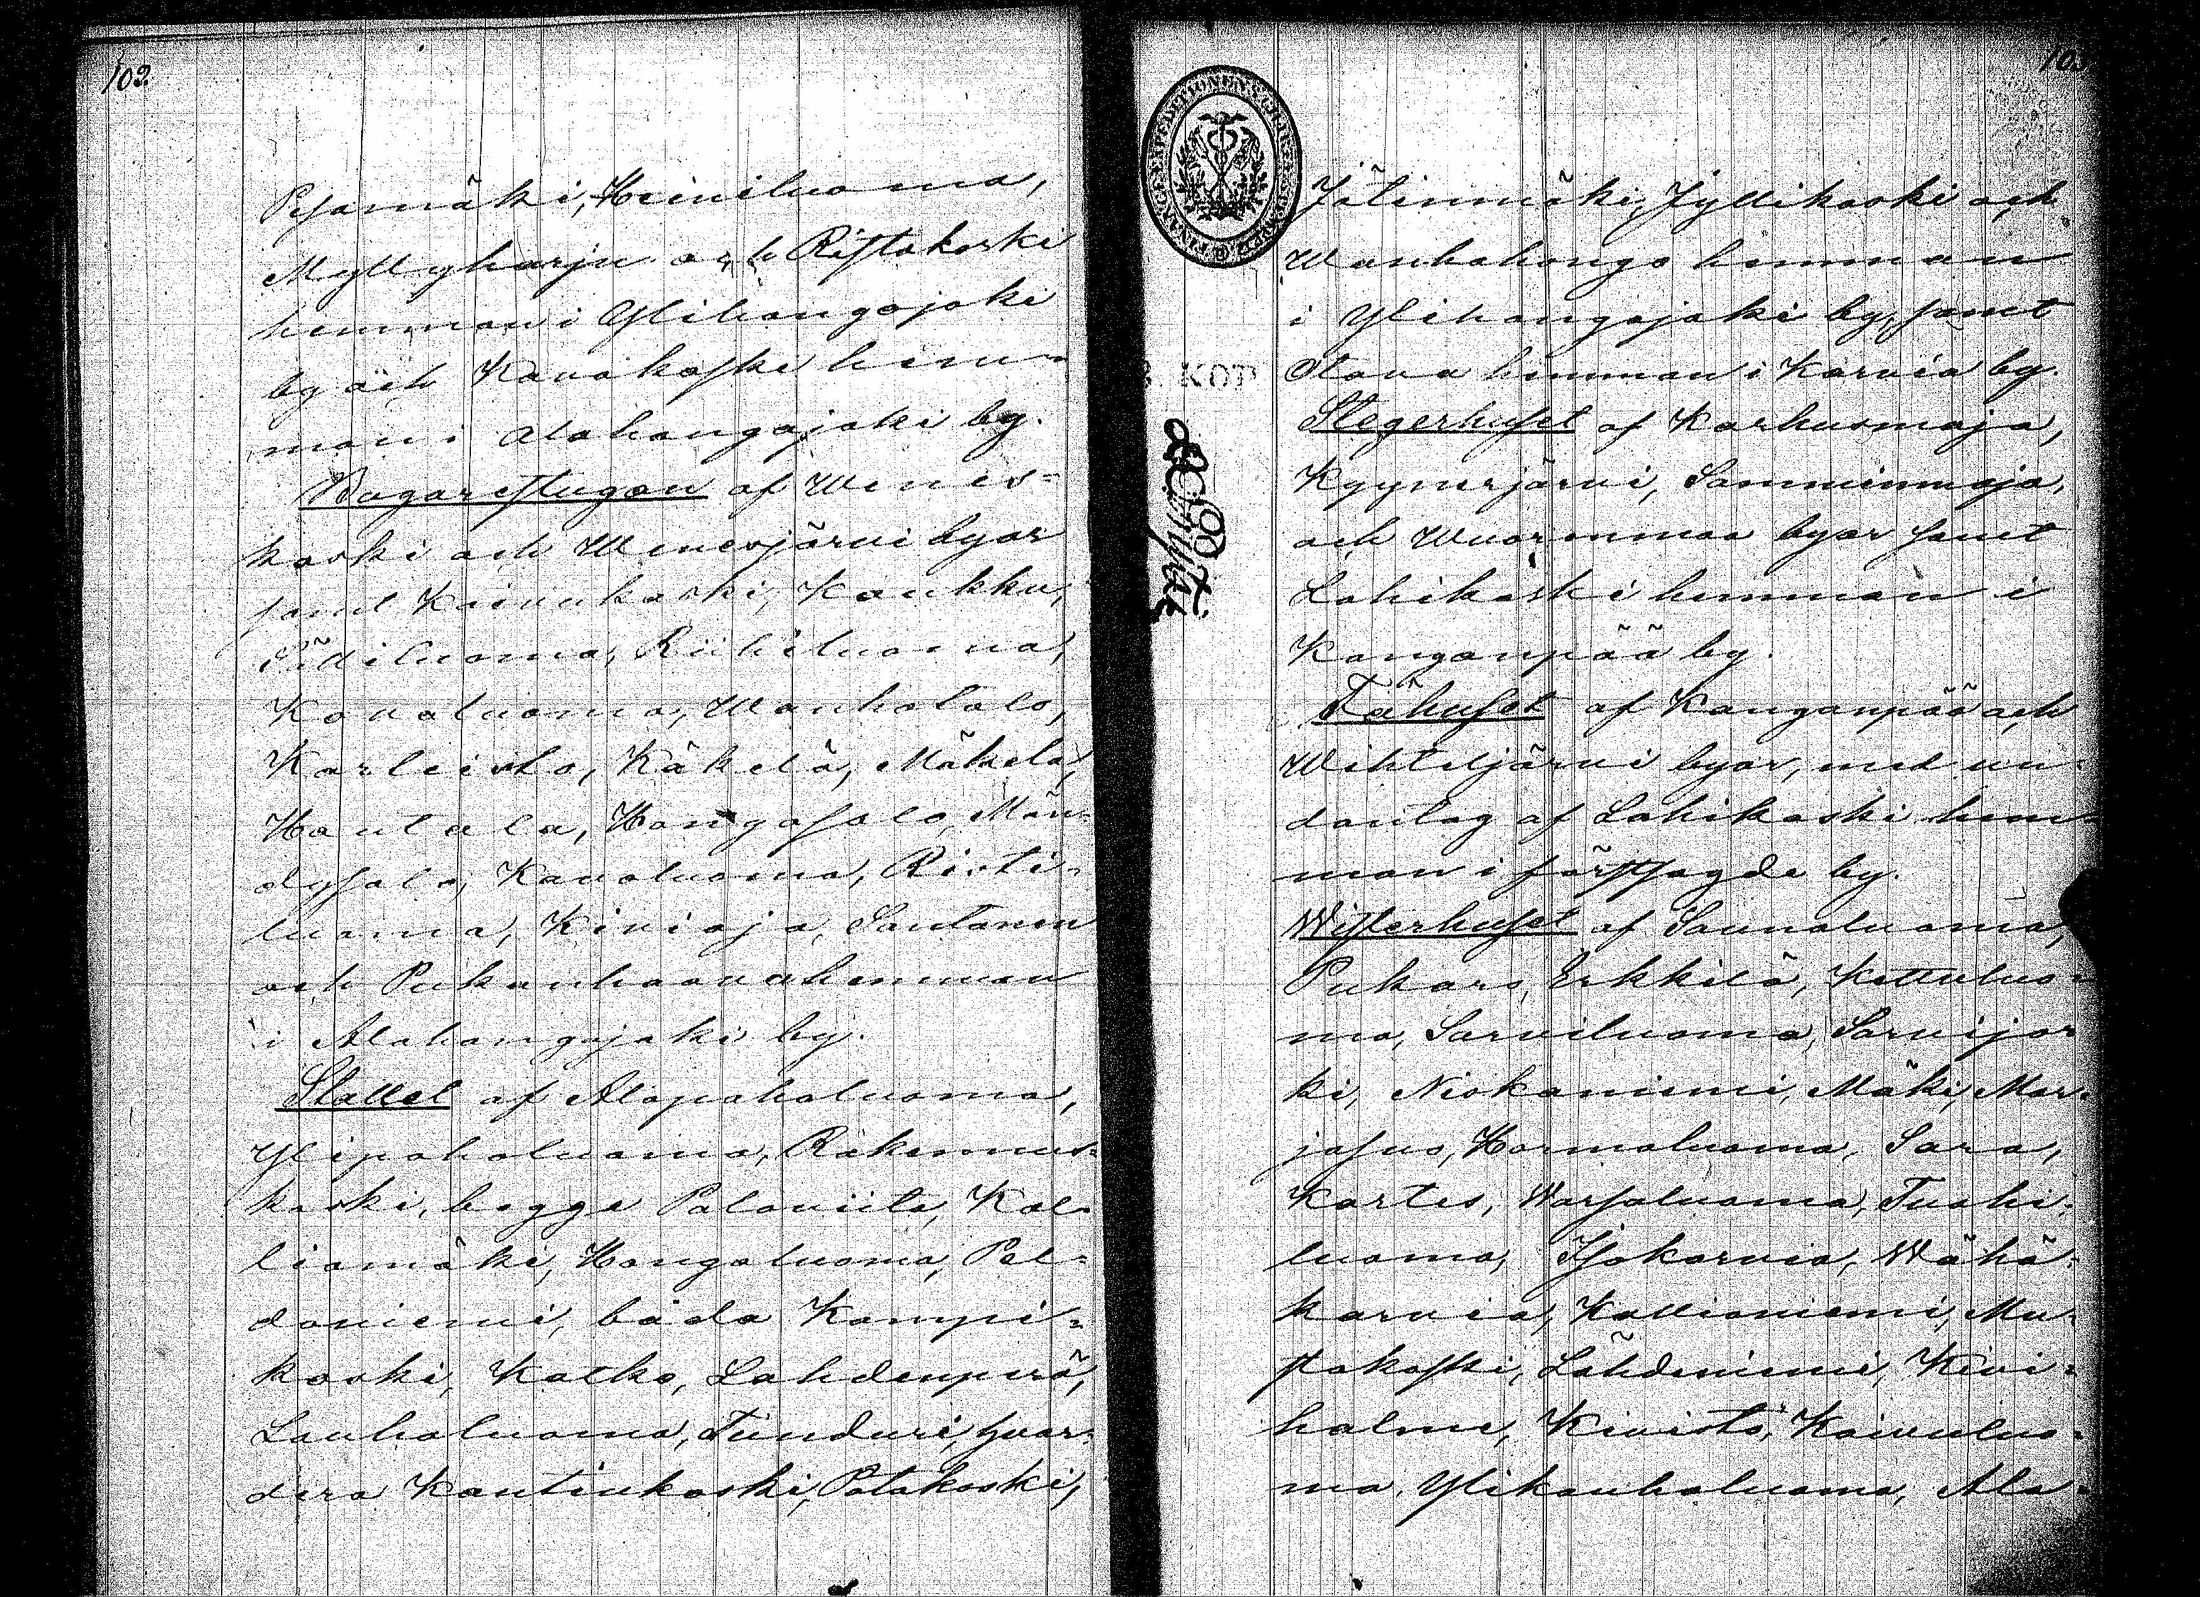 102
Pesämäki, Heiniluoma,
Myllyharju och Ristakoski
hemman i Ylihongojoki
by och Kauakoski hem-
man i Alahongojoki by.
Bagarestugan af Wenes-
koski och Wenesjärvi byar
samt Koivukoski, Kaukku,
Riihiluoma,
Kovaluoma, Wanhatalo,
Karleisto, Käkelä, Mäkelä,
Hautala, Hongosalo, Män-
dysalo, Kavaluoma, Risti-
luoma, Kivioja, Santanen
och Pukanhaava hemman
i Alahongojoki by.
Stallet af Alapaholuoma,
Ylipaholuoma, Rakennus-
koski, begge Palaviita, Kal-
liomäki, Hongoluoma, Pel-
doniemi, båda Kampi-
koski, Katko, Lahdenperä,
Lauhaluoma, Tunduri, hvar-
dera Kantinkoski, Patakoski,
103
FINANCE-EXPEDITIONEN
Jätinmäki, Jyllikoski och
Wanhahongo hemman
i Ylihongojoki by, samt
Otava hemman i Karvia by.
Stegerhuset af Karhusmaja,
Kyynerjärvi, Samminmaja,
och Wuorenmaa byar samt
Lohikoski hemman i
Kanganpää by.
Fähuset af Kanganpää och
Wihteljärvi byar, med un-
dantag af Lohikoski hem-
man i förstsagde by.
Wisterhuset af Saunaluoma,
Pukara, Erkkilä, Kettuluo-
ma, Sarviluoma, Sarvijo-
ki, Niskaniemi, Mäki, Mar-
jasuo, Hormaluoma, Sara,
Kartes, Warsaluoma, Tuohi-
luoma, Isokarvia, Wähä-
karvia, Kallioniemi, Mu-
stakoski, Lähdeniemi, Kivi-
halme, Kivistö, Koivuluo-
ma, Ylikauhaluoma, Ala-